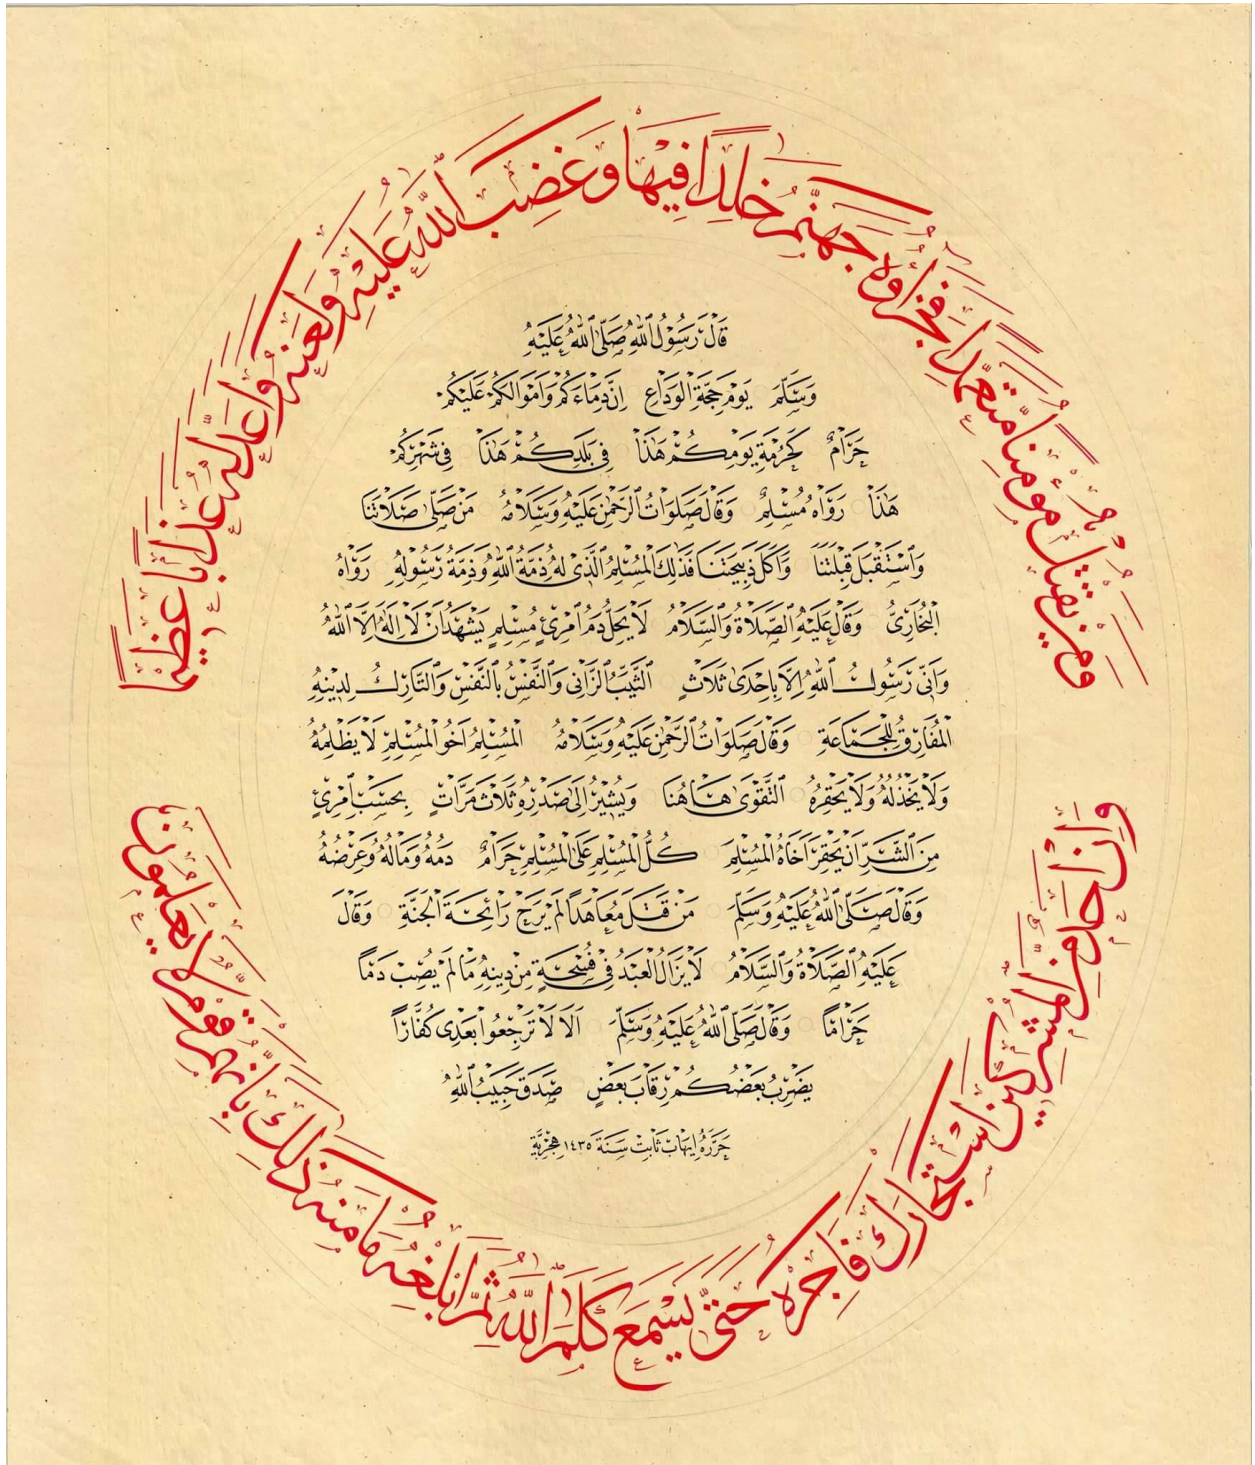 ومن يقتل مؤمنا متعمدا فجزاؤه جهنم خلدا فيها وغضب الله عليه ولعنه وأعد له عذابا عظيما
قَالَ رَسُولُ اللهِ صَلَّى اللهُ عَلَيْهِ
وَسَلَّمَ يَوْمَ حَجَّةِ الْوَدَاعِ إِنَّ دِمَاءَكُمْ وَأَمْوَالَكُمْ عَلَيْكُمْ
حَرَامٌ كَحُرْمَةِ يَوْمِكُمْ هَذَا فِي بَلَدِكُمْ هَذَا فِي شَهْرِكُمْ
هَذَا رَوَاهُ مُسْلِمٌ وَقَالَ صَلَوَاتُ الرَّحْمٰنِ عَلَيْهِ وَسَلَامُهُ مَنْ صَلَّى صَلَاتَنَا
وَاسْتَقْبَلَ قِبْلَتَنَا وَأَكَلَ ذَبِيحَتَنَا فَذَلِكَ الْمُسْلِمُ الَّذِي لَهُ ذِمَّةُ اللهِ وَذِمَّةُ رَسُولِهِ رَوَاهُ
الْبُخَارِيُّ وَقَالَ عَلَيْهِ الصَّلَاةُ وَالسَّلَامُ لَا يَحِلُّ دَمُ امْرِئٍ مُسْلِمٍ يَشْهَدُ أَنْ لَا إِلَهَ إِلَّا اللهُ
وَأَنِّي رَسُولُ اللهِ إِلَّا بِإِحْدَى ثَلَاثٍ الثَّيِّبُ الزَّانِي وَالنَّفْسُ بِالنَّفْسِ وَالتَّارِكُ لِدِينِهِ
الْمُفَارِقُ لِلْجَمَاعَةِ وَقَالَ صَلَوَاتُ الرَّحْمٰنِ عَلَيْهِ وَسَلَامُهُ الْمُسْلِمُ أَخُو الْمُسْلِمِ لَا يَظْلِمُهُ
وَلَا يَخْذُلُهُ وَلَا يَحْقِرُهُ التَّقْوَى هَاهُنَا وَيُشِيرُ إِلَى صَدْرِهِ ثَلَاثَ مَرَّاتٍ بِحَسْبِ امْرِئٍ
مِنَ الشَّرِّ أَنْ يَحْقِرَ أَخَاهُ الْمُسْلِمَ كُلُّ الْمُسْلِمِ عَلَى الْمُسْلِمِ حَرَامٌ دَمُهُ وَمَالُهُ وَعِرْضُهُ
وَقَالَ صَلَّى اللهُ عَلَيْهِ وَسَلَّمَ مَنْ قَتَلَ مُعَاهَدًا لَمْ يَرَحْ رَائِحَةَ الْجَنَّةِ وَقَالَ
عَلَيْهِ الصَّلَاةُ وَالسَّلَامُ لَا يَزَالُ الْعَبْدُ فِي فُسْحَةٍ مِنْ دِينِهِ مَا لَمْ يُصِبْ دَمًا
حَرَامًا وَقَالَ صَلَّى اللهُ عَلَيْهِ وَسَلَّمَ أَلَا لَا تَرْجِعُوا بَعْدِي كُفَّارًا
يَضْرِبُ بَعْضُكُمْ رِقَابَ بَعْضٍ صَدَقَ حَبِيبُ اللهِ
حَرَّرَهُ إِيهَاب ثَابِت سَنَةَ ١٤٣٥ هِجْرِيَّة
وإن أحد من المشركين استجارك فأجره حتى يسمع كلم الله ثم أبلغه مأمنه ذلك بأنهم قوم لا يعلمون